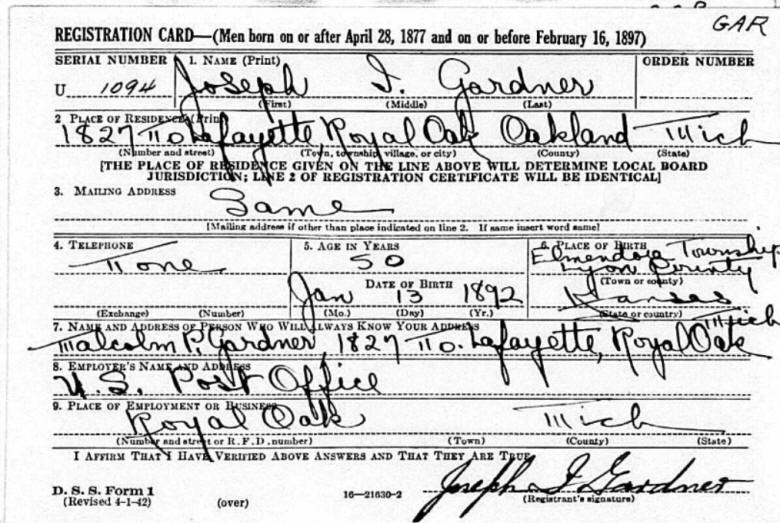 GAR
REGISTRATION CARD—(Men born on or after April 28, 1877 and on or before February 16, 1897)
SERIAL NUMBER 1. NAME (Print) ORDER NUMBER
U 1094 Joseph I. Gardner
(First) (Middle) (Last)
2 PLACE OF RESIDENCE (Print)
1827 No. Lafayette, Royal Oak Oakland Mich
(Number and street) (Town, township, village, or city) (County) (State)
[THE PLACE OF RESIDENCE GIVEN ON THE LINE ABOVE WILL DETERMINE LOCAL BOARD
JURISDICTION; LINE 2 OF REGISTRATION CERTIFICATE WILL BE IDENTICAL]
3. MAILING ADDRESS
Same
[Mailing address if other than place indicated on line 2. If same insert word same]
4. TELEPHONE 5. AGE IN YEARS 6. PLACE OF BIRTH
None 50 Elmendorg Township
DATE OF BIRTH Lyon County
(Town or county)
Jan 13 1892 Kansas
(Exchange) (Number) (Mo.) (Day) (Yr.) (State or country)
7. NAME AND ADDRESS OF PERSON WHO WILL ALWAYS KNOW YOUR ADDRESS
Malcolm P. Gardner 1827 No. Lafayette, Royal Oak Mich
8. EMPLOYER'S NAME AND ADDRESS
U.S. Post Office
9. PLACE OF EMPLOYMENT OR BUSINESS
Royal Oak Mich
(Number and street or R. F. D. number) (Town) (County) (State)
I AFFIRM THAT I HAVE VERIFIED ABOVE ANSWERS AND THAT THEY ARE TRUE.
Joseph I Gardner
D. S. S. Form 1
(Revised 4-1-42) (over) 16—21630-2 (Registrant's signature)